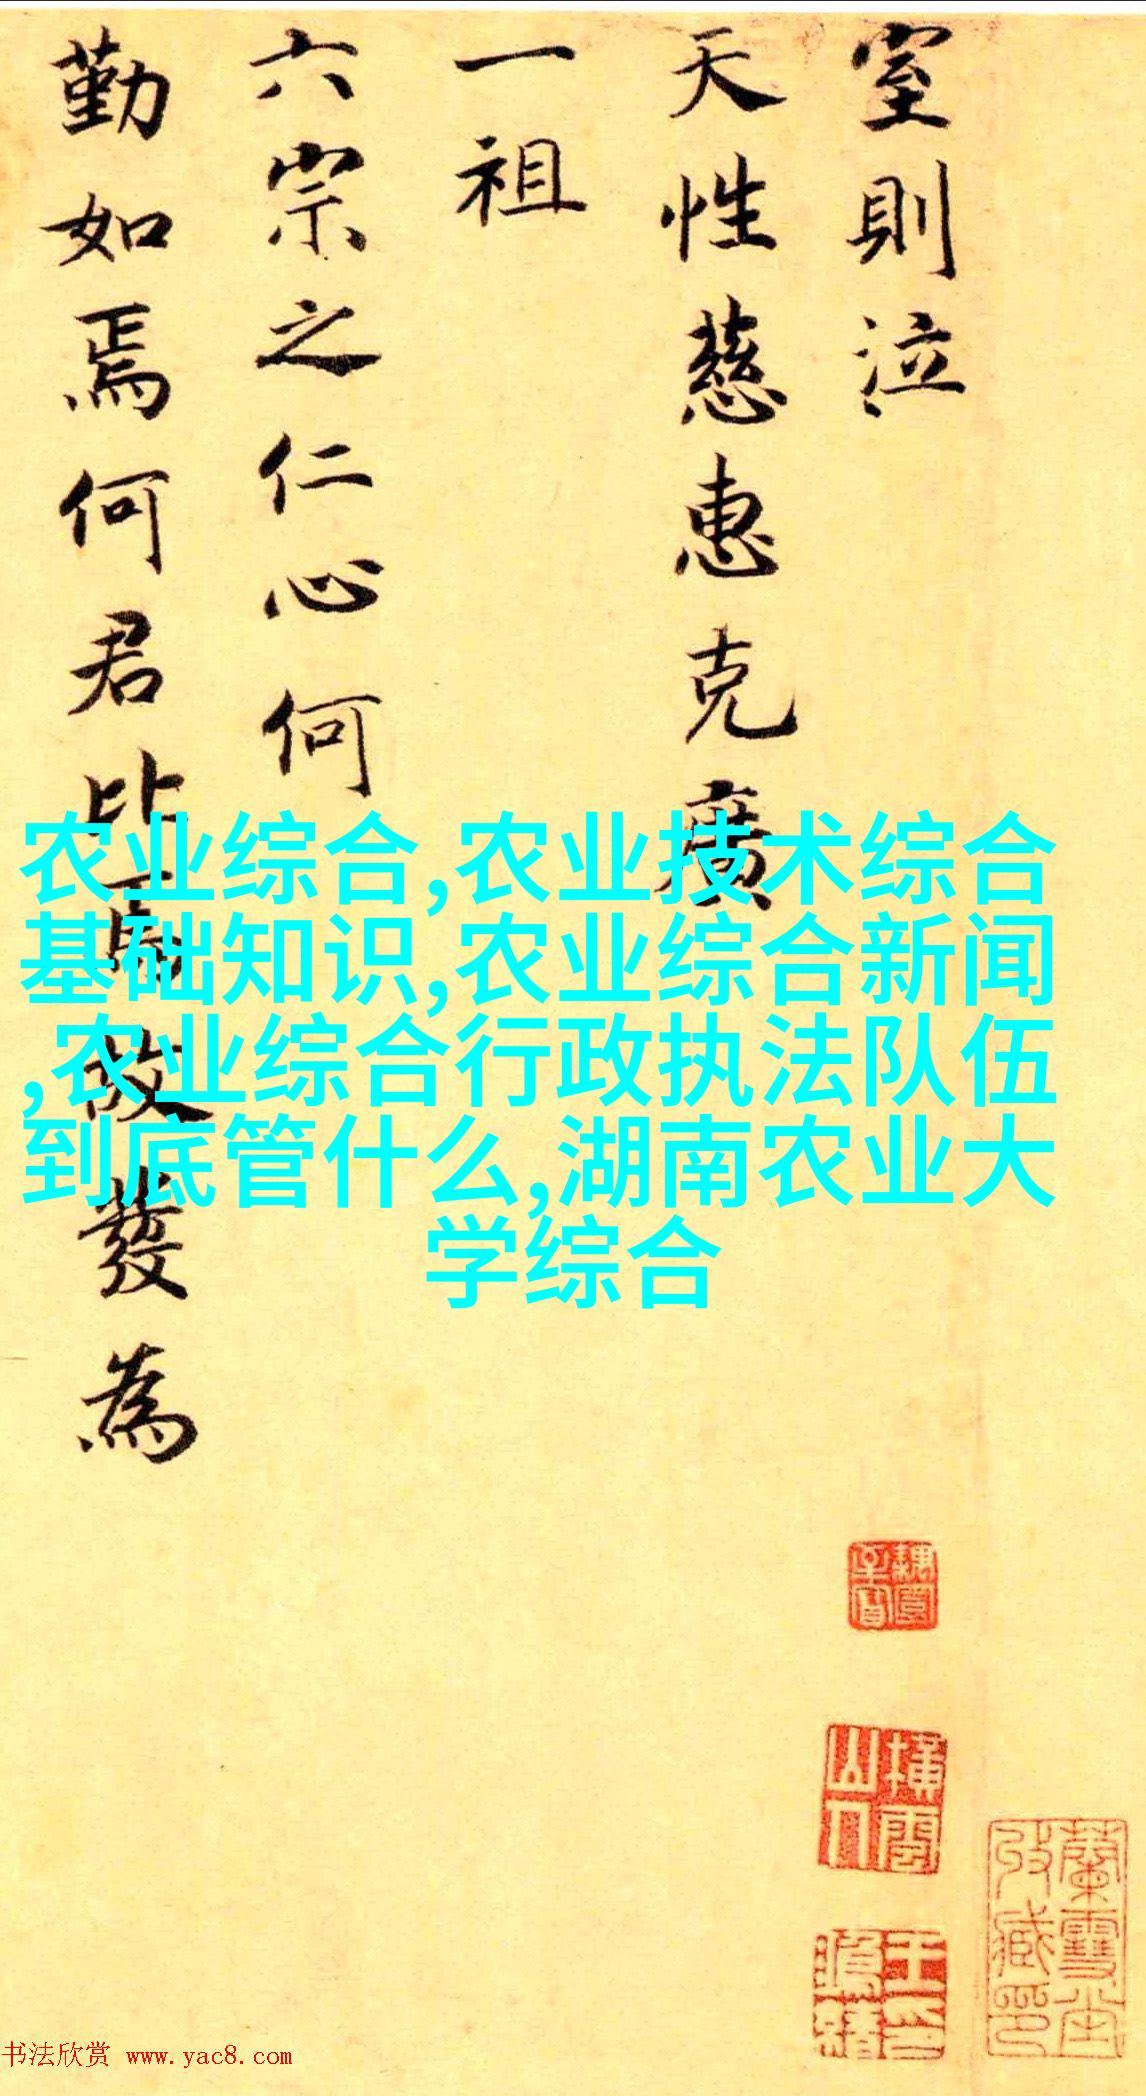 室則泣
天性慈惠克廣
一祖
六宗之仁心何
勤如焉何君比焉故發為
农业综合,农业技术综合
基础知识,农业综合新闻
,农业综合行政执法队伍
到底管什么,湖南农业大
学综合
横雲山人
蘭雪堂收藏印
王鴻緒印
书法欣赏 www.yac8.com